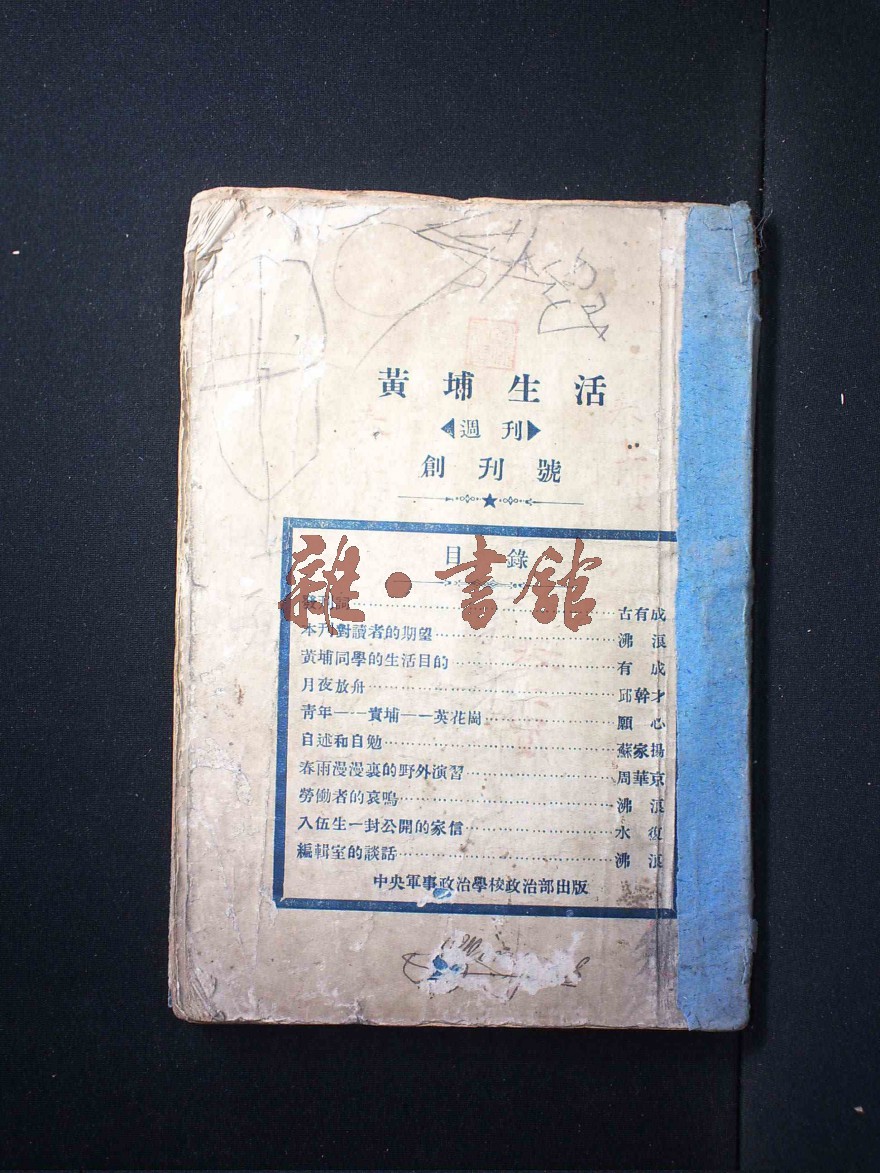 黃埔生活
週刊
創刊號
目錄
雜·書館
發刊詞 古有成
本刊對讀者的期望 沸浪
黃埔同學的生活目的 有成
月夜放舟 邱幹才
青年——黃埔——英花崗 願心
自述和自勉 蘇家揚
春雨漫漫裏的野外演習 周華京
勞働者的哀鳴 沸浪
入伍生一封公開的家信 水復
編輯室的談話 沸浪
中央軍事政治學校政治部出版